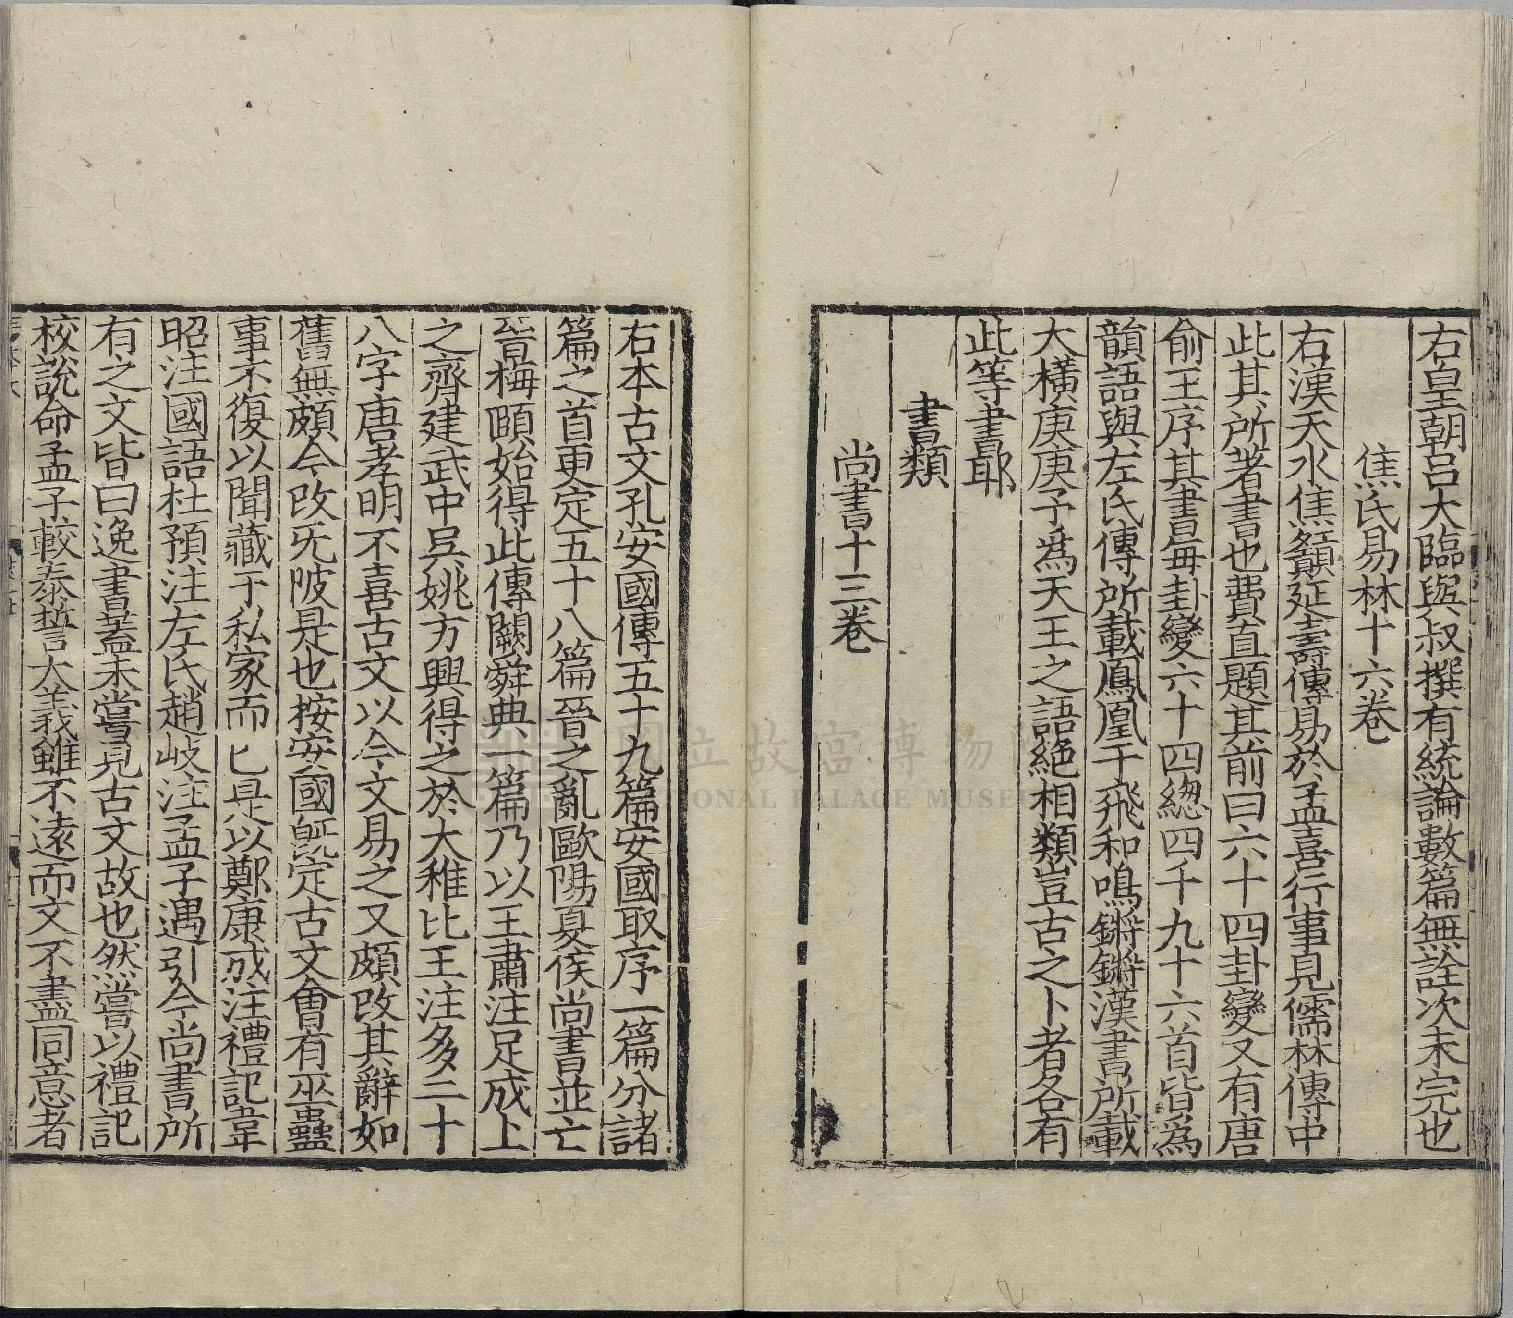 右皇朝吕大臨與叔撰有統論數篇無詮次未完也
焦氏易林十六卷
右漢天水焦籲延壽傳易於孟喜行事見儒林傳中
此其所著書也費直題其前曰六十四卦變又有唐
俞王序其書每卦變六十四緫四千九十六首皆為
韻語與左氏傳所載鳳凰于飛和鳴鏘鏘漢書所載
大橫庚庚予為天王之語絶相類豈古之卜者各有
此等書耶
書類
尚書十三卷
右本古文孔安國傳五十九篇安國取序一篇分諸
篇之首更定五十八篇晉之亂歐陽夏侯尚書並亡
晉梅頤始得此傳闕舜典一篇乃以王肅注足成上
之齊建武中吳姚方興得之於大稚比王注多二十
八字唐孝明不喜古文以今文易之又頗改其辭如
舊無頗今改旡陂是也按安國旣定古文會有巫蠱
事不復以聞藏于私家而已是以鄭康成注禮記韋
昭注國語杜預注左氏趙岐注孟子遇引今尚書所
有之文皆曰逸書蓋未嘗見古文故也然嘗以禮記
校說命孟子較泰誓大義雖不遠而文不盡同意者
國立故宮博物院
NATIONAL PALACE MUSEUM